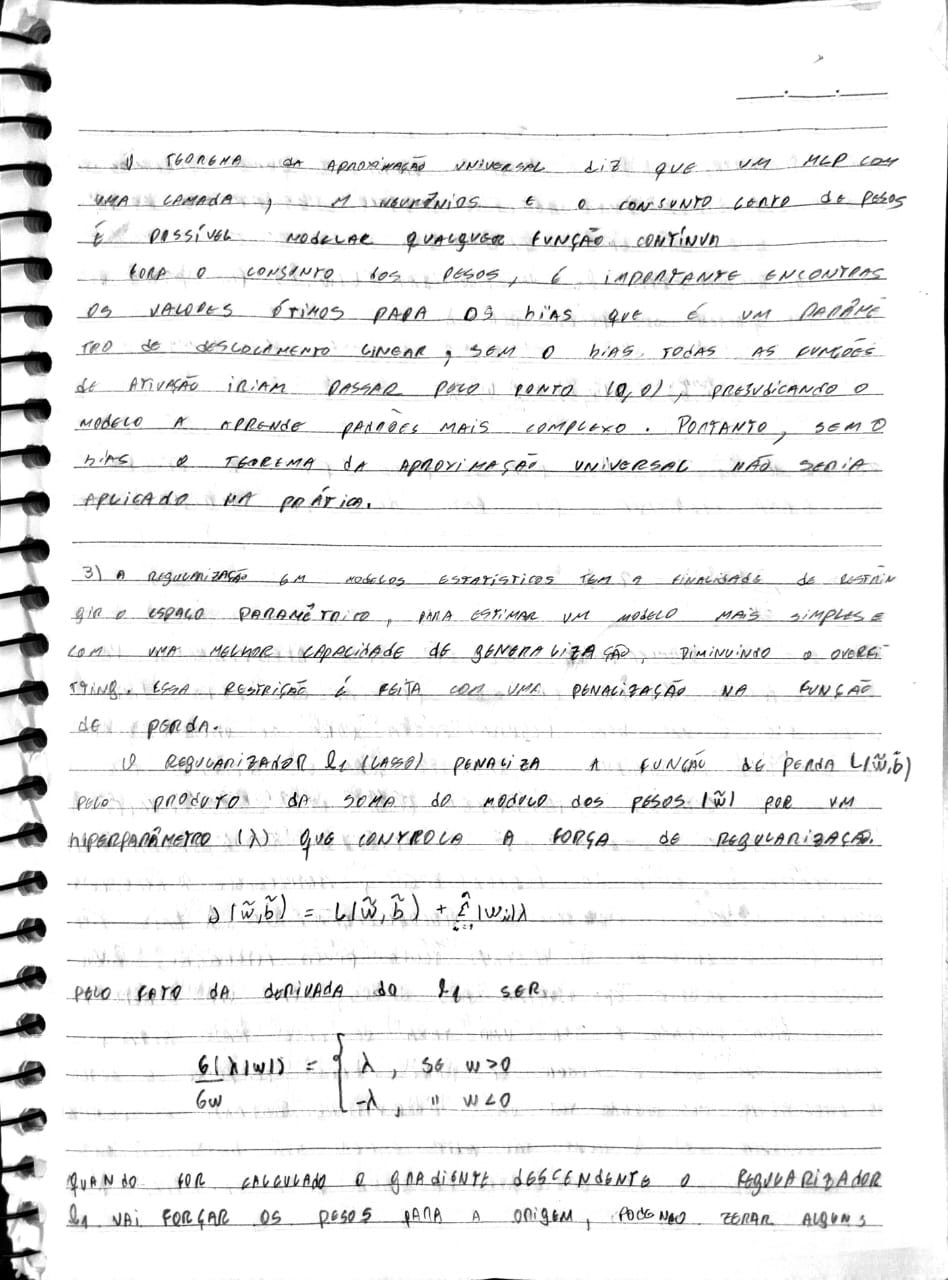 O TEOREMA DA APROXIMAÇÃO UNIVERSAL DIZ QUE UM MLP COM
UMA CAMADA, M NEURÔNIOS E O CONJUNTO CERTO DE PESOS
É POSSÍVEL MODELAR QUALQUER FUNÇÃO CONTÍNUA
FORA O CONJUNTO DOS PESOS, É IMPORTANTE ENCONTRAR
OS VALORES ÓTIMOS PARA OS BIAS QUE É UM PARÂME
TRO DE DESLOCAMENTO LINEAR, SEM O BIAS TODAS AS FUNÇÕES
DE ATIVAÇÃO IRIAM PASSAR PELO PONTO (0,0), PREJUDICANDO O
MODELO A APRENDE PADRÕES MAIS COMPLEXO. PORTANTO, SEM O
BIAS O TEOREMA DA APROXIMAÇÃO UNIVERSAL NÃO SERIA
APLICADO NA PRÁTICA.
3) A REGULARIZAÇÃO EM MODELOS ESTATÍSTICOS TEM A FINALIDADE DE RESTRIN
GIR O ESPAÇO PARAMÉTRICO, PARA ESTIMAR UM MODELO MAIS SIMPLES E
COM UMA MELHOR CAPACIDADE DE GENERALIZAÇÃO, DIMINUINDO O OVERFI
TTING. ESSA RESTRIÇÃO É FEITA COM UMA PENALIZAÇÃO NA FUNÇÃO
DE PERDA.
O REGULARIZADOR l₁ (LASSO) PENALIZA A FUNÇÃO DE PERDA L(w̃,b̃)
PELO PRODUTO DA SOMA DO MODULO DOS PESOS |w̃| POR UM
HIPERPARÂMETRO (λ) QUE CONTROLA A FORÇA DE REGULARIZAÇÃO.
J(w̃,b̃) = L(w̃,b̃) + Σ |wᵢ|λ
PELO FATO DA DERIVADA DO l₁ SER
δ(λ|w|) = { λ, SE w>0
δw -λ, " w<0
QUANDO FOR CALCULADO O GRADIENTE DESCENDENTE O REGULARIZADOR
l₁ VAI FORÇAR OS PESOS PARA A ORIGEM, PODENDO ZERAR ALGUNS